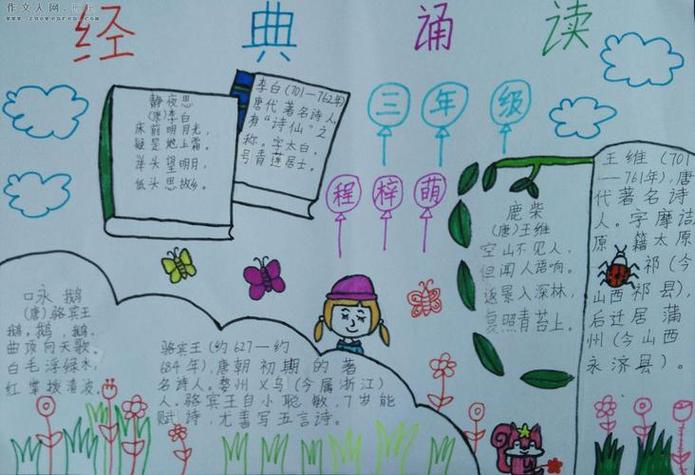 作文人网
www.zuowenren.com
经典诵读
静夜思
(唐)李白
床前明月光,
疑是地上霜。
举头望明月,
低头思故乡。
李白(701—762年)
唐代著名诗人
有"诗仙"之
称。字太白,
号青莲居士。
三年级
程梓萌
鹿柴
(唐)王维
空山不见人,
但闻人语响。
返景入深林,
复照青苔上。
王维(701
—761年),唐
代著名诗
人。字摩诘
原籍太原
祁(今
山西祁县),
后迁居蒲
州(今山西
永济县)。
口永鹅
(唐)骆宾王
鹅,鹅,鹅
曲项向天歌。
白毛浮绿水,
红掌拨清波。
骆宾王(约627—约
684年),唐朝初期的著
名诗人。婺州义乌(今属浙江)
人。骆宾王自小聪敏,7岁能
赋诗,尤善写五言诗。